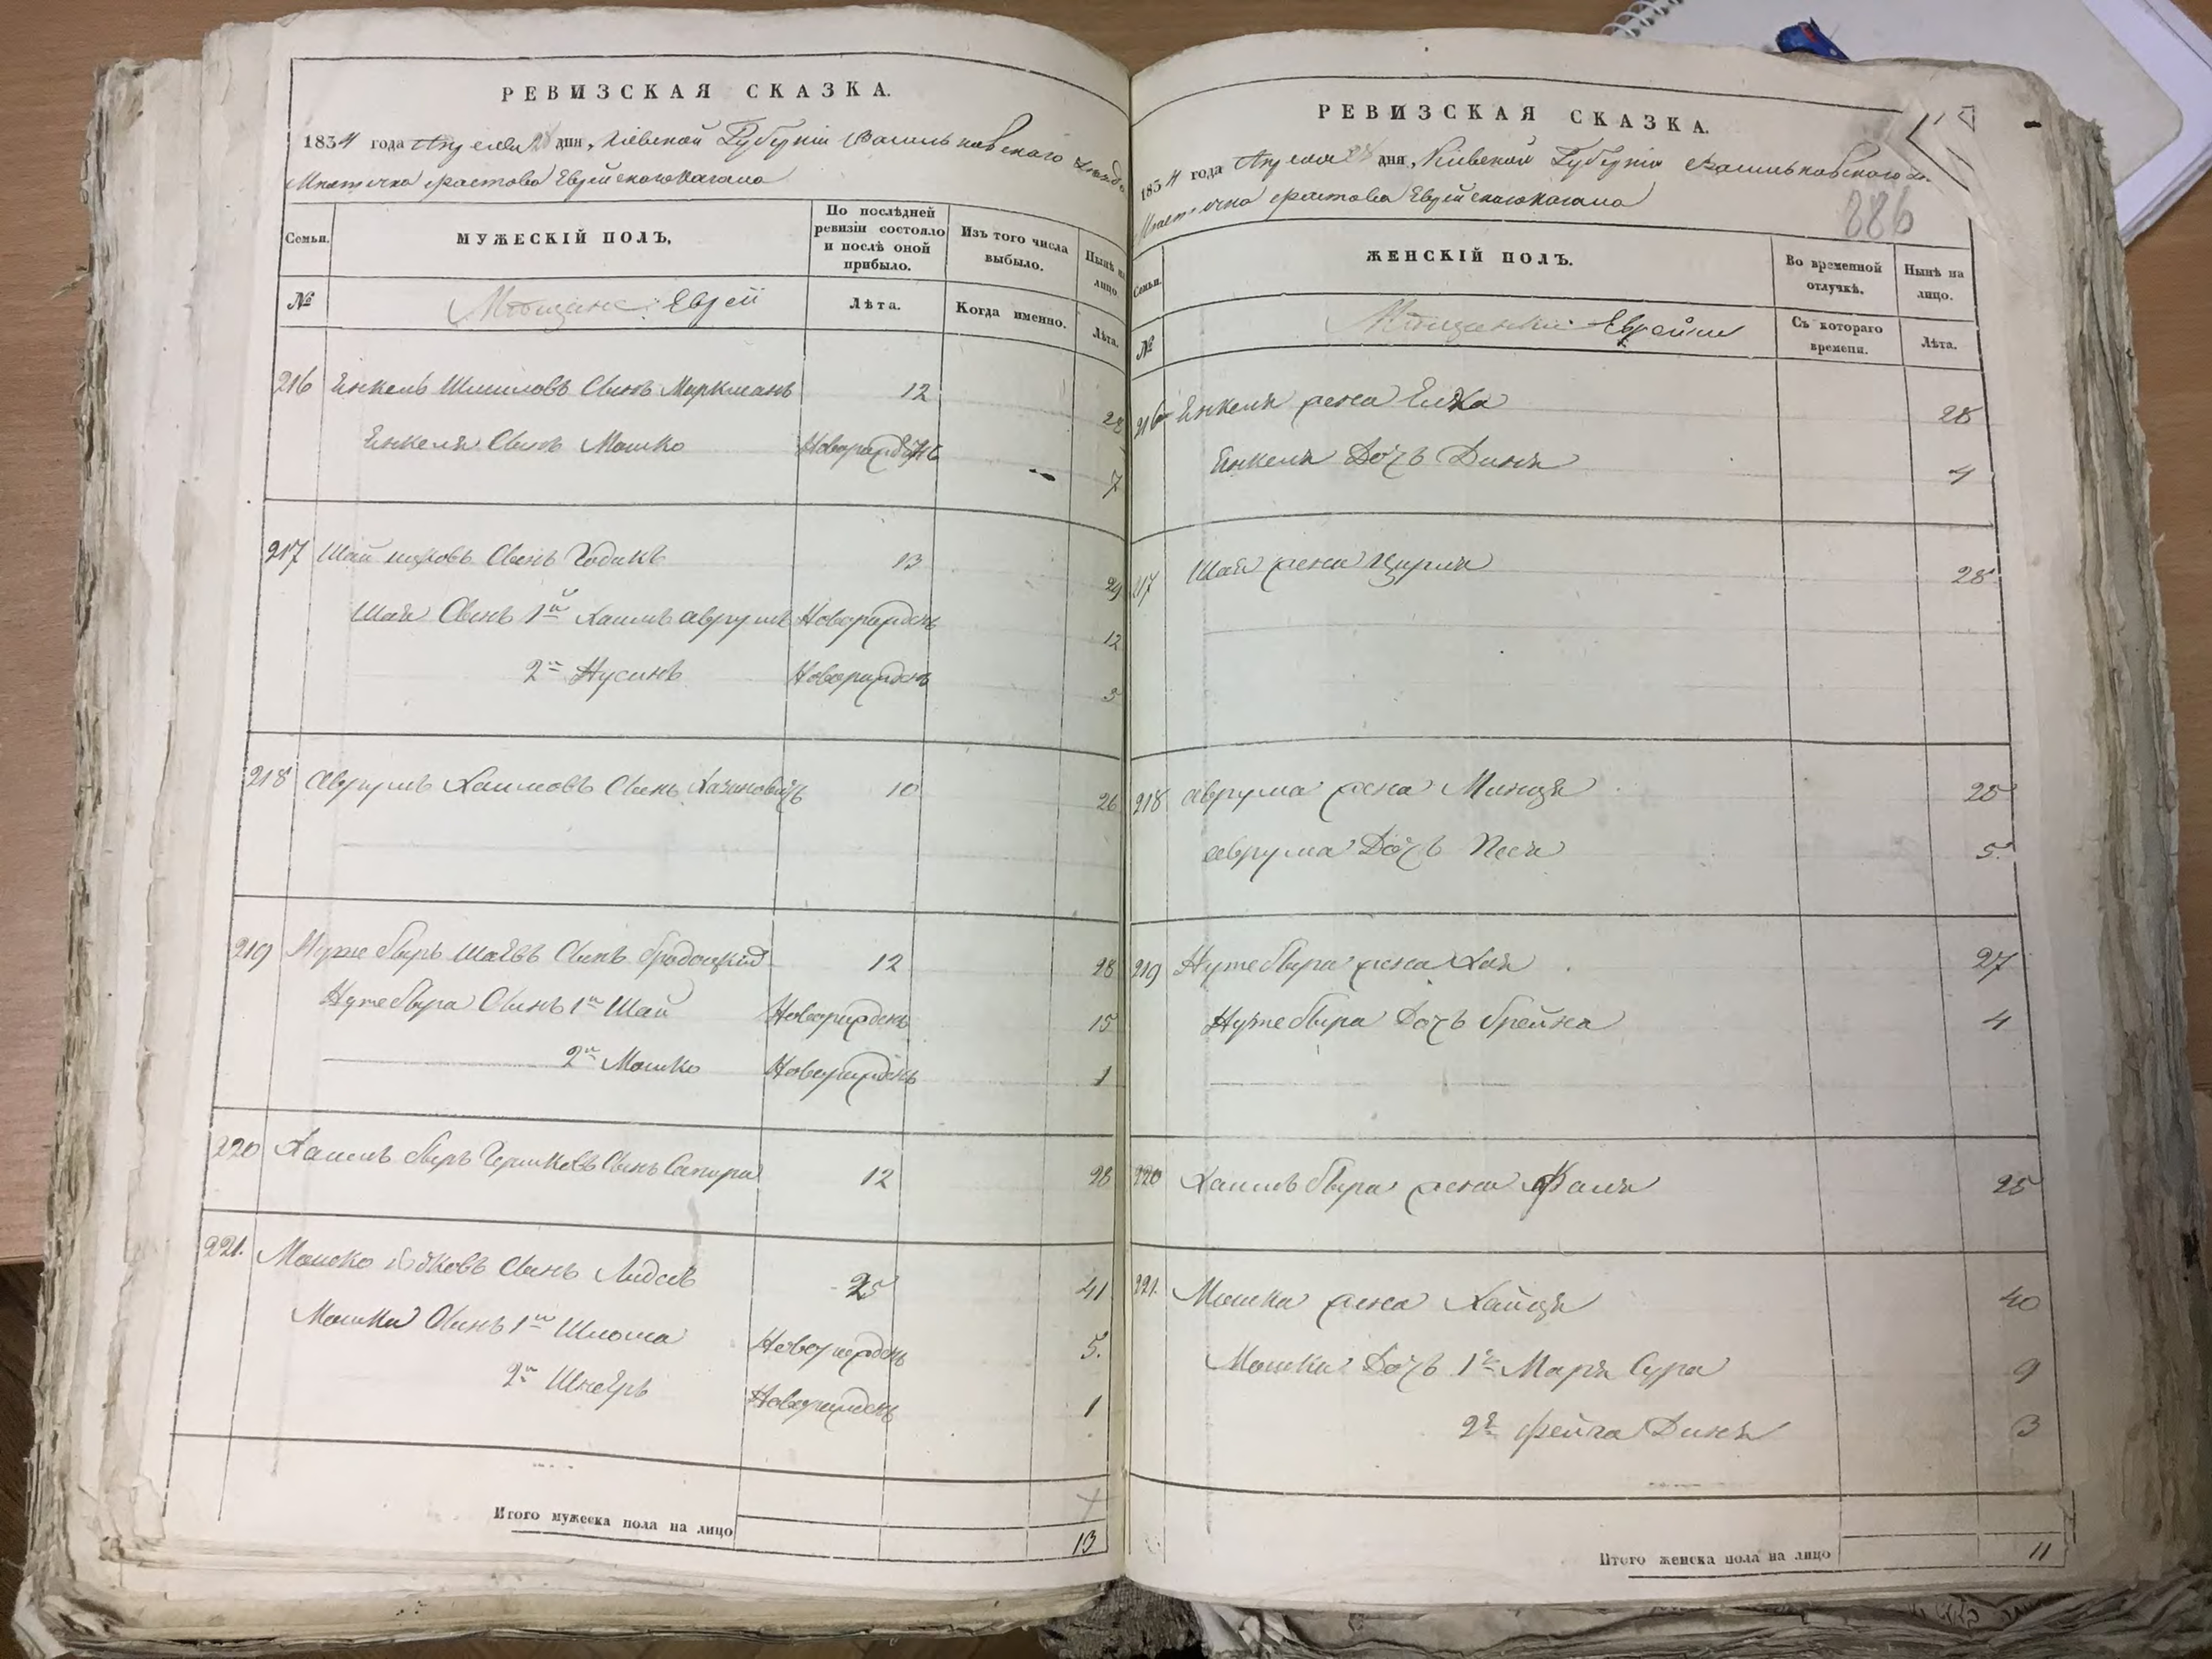 РЕВИЗСКАЯ СКАЗКА.
1834 года Апреля дня, Кіевской Губерніи Васильковскаго уезда
Мѣстечка Фастова Еврейскаго Кагала
Семьи.
МУЖЕСКІЙ ПОЛЪ,
По послѣдней ревизіи состояло и послѣ оной прибыло.
Изъ того числа выбыло.
Нынѣ на лицо
№
Мѣщане Евреи
Лѣта.
Когда именно.
Лѣта.
216 Енкель Шмиловъ Сынъ Меркманъ 12 28
Енкеля Сынъ Мошко Новорожденъ 7
217 Шая Сынъ Годикъ 13 29
Шаи Сынъ 1й Хаимъ Аврумъ Новорожденъ 12
2й Нусинъ Новорожденъ 3
218 Аврумъ Хаимовъ Сынъ 10 26
219 Нутеберъ Шаевъ Сынъ Бродоцкій 12 28
Нутебера Сынъ 1й Шая Новорожденъ 15
2й Мошко Новорожденъ 1
220 Хаимъ Беръ Гершковъ Сынъ Сапира 12 28
221. Мошко Сынъ Лидеръ 25 41
Мошка Сынъ 1й Шлома Новорожденъ 5.
2й Шнееръ Новорожденъ 1
Итого мужеска пола на лицо 13
РЕВИЗСКАЯ СКАЗКА.
1834 года Апреля дня, Кіевской Губерніи Васильковскаго
Мѣстечка Фастова Еврейскаго Кагала
886
Семьи.
ЖЕНСКІЙ ПОЛЪ.
Во временной отлучкѣ.
Нынѣ на лицо.
№
Мѣщанки Еврейки
Съ котораго времени.
Лѣта.
216 Енкеля жена Елка 28
Енкеля Дочь Диня 4
217 Шаи жена Цирля 28
218 Аврума жена Минця 25
Аврума Дочь Песя 5.
219 Нутебера жена Хая 27
Нутебера Дочь Брейна 4
220 Хаимъ Бера жена 25
221. Мошка жена Хайця 40
Мошка Дочь 1я Маря Сура 9
2я Фейга Диня 3
Итого женска пола на лицо 11